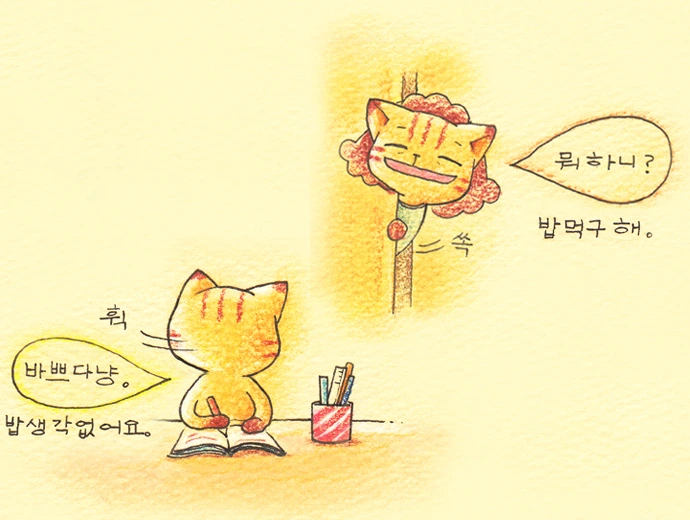 뭐하니?
밥먹구 해。
쏙
휙
바쁘다냥。
밥생각없어요。